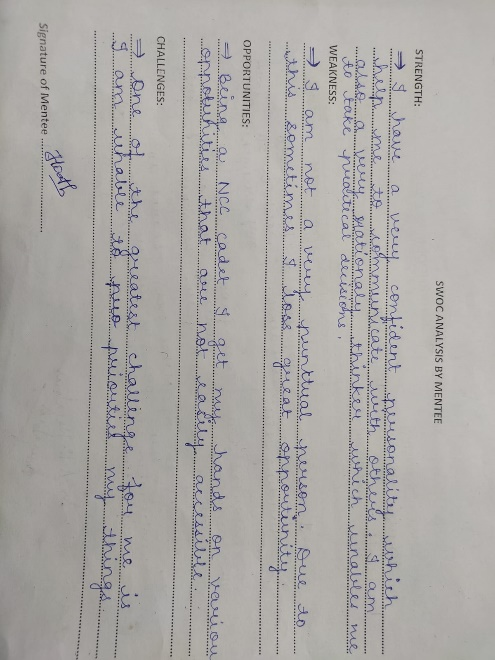 SWOC ANALYSIS BY MENTEE
STRENGTH:
⇒ I have a very confident personality which
help me to communicate with others. I am
also a very rationaly thinker which unables me
to take practical decisions.
WEAKNESS:
⇒ I am not a very punctual person. Due to
this sometimes I lose great opportunity.
OPPORTUNITIES:
⇒ Being a NCC cadet I get my hands on various
oppotunities that are not easily accessible.
CHALLENGES:
⇒ One of the greatest challenge for me is
I am unable to prio prioritie my things
Signature of Mentee